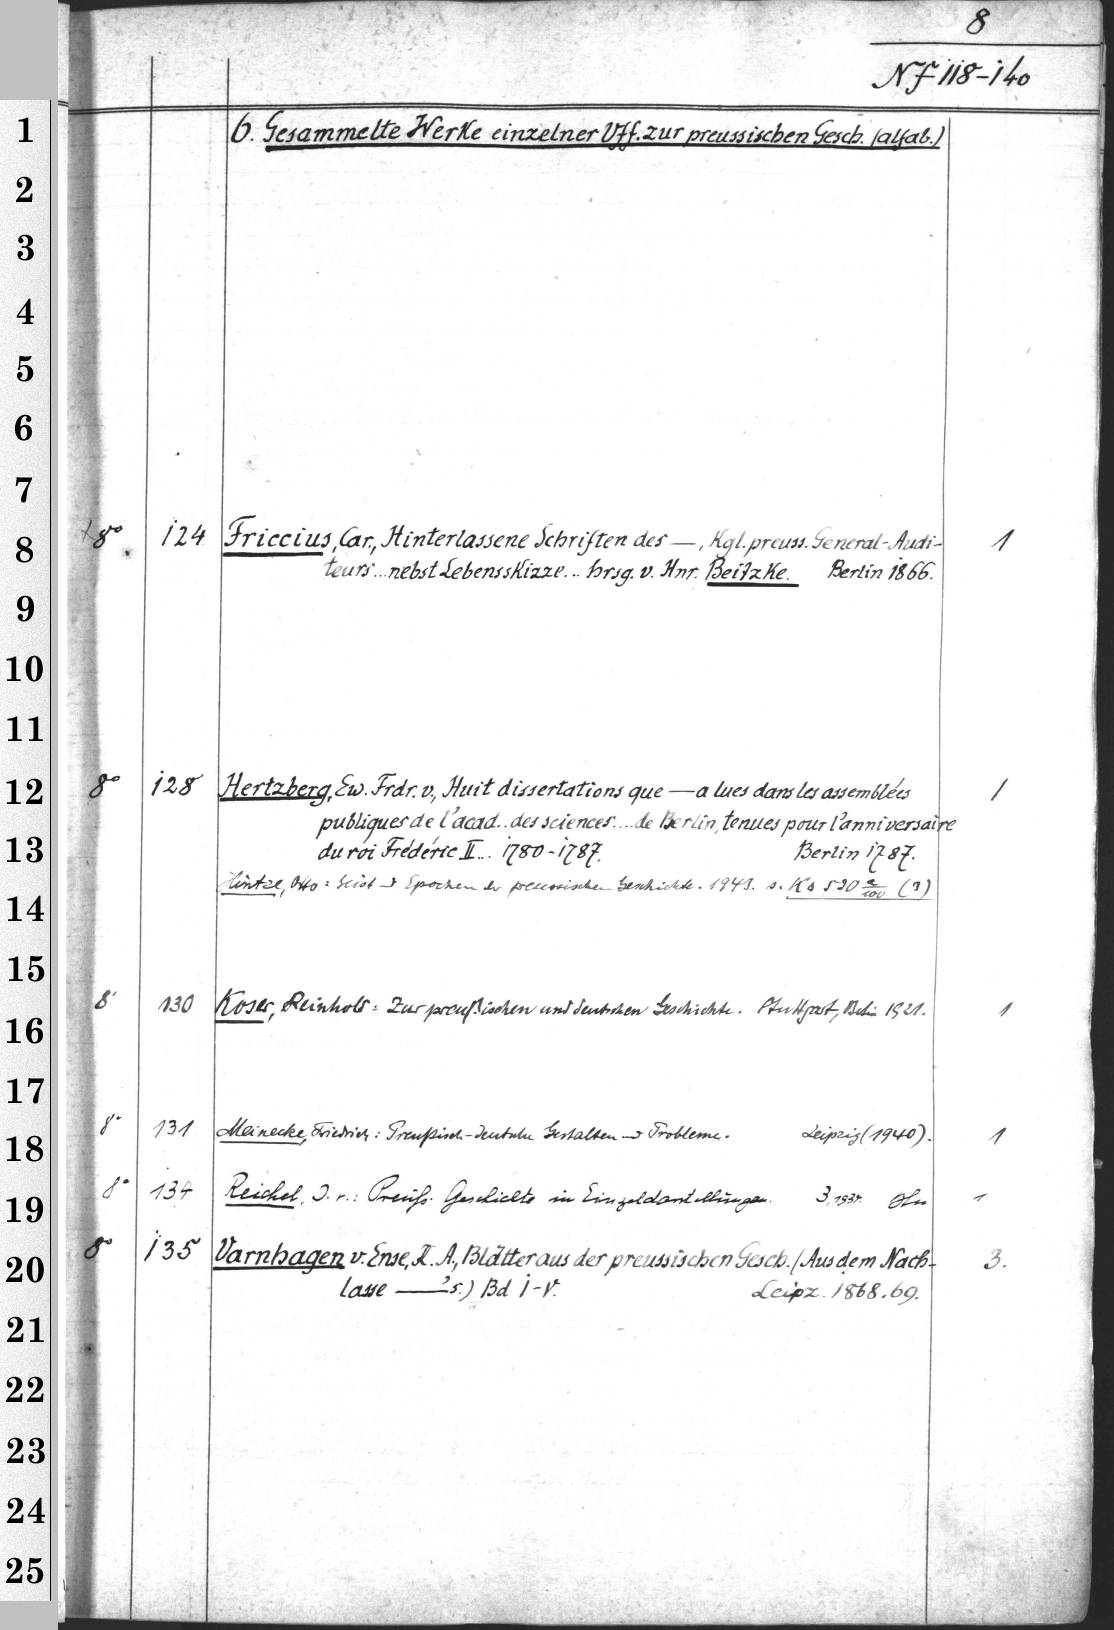 8
Nf 118-140
1
6. Gesammelte Werke einzelner Vff. zur preussischen Gesch. (alfab.)
2
3
4
5
6
7
8
8° 124 Friccius, Car., Hinterlassene Schriften des —, Kgl. preuss. General-Audi- 1
teurs... nebst Lebensskizze... hrsg. v. Hnr. Beitzke. Berlin 1866.
9
10
11
12
8° 128 Hertzberg, Ew. Frdr. v., Huit dissertations que — a lues dans les assemblées 1
publiques de l'acad.. des sciences.... de Berlin, tenues pour l'anniversaire
13
du roi Frédéric II... 1780-1787. Berlin 1787.
Hintze, Otto: Geist u Epochen der preussischen Geschichte. 1943. s. Ks 530 a/100 (3)
14
15
8° 130 Koser, Reinhold: Zur preußischen und deutschen Geschichte. Stuttgart, Berlin 1921. 1
16
17
8° 131 Meinecke, Friedrich: Preußisch-deutsche Gestalten u Probleme. Leipzig (1940). 1
18
8° 134 Reichel, J. r.: Preuß. Geschichte in Einzeldarstellungen. 3, 1931. 1
19
8° 135 Varnhagen v. Ense, K. A., Blätter aus der preussischen Gesch. (Aus dem Nach- 3.
20
lasse —'s.) Bd I-V. Leipz. 1868.69.
21
22
23
24
25